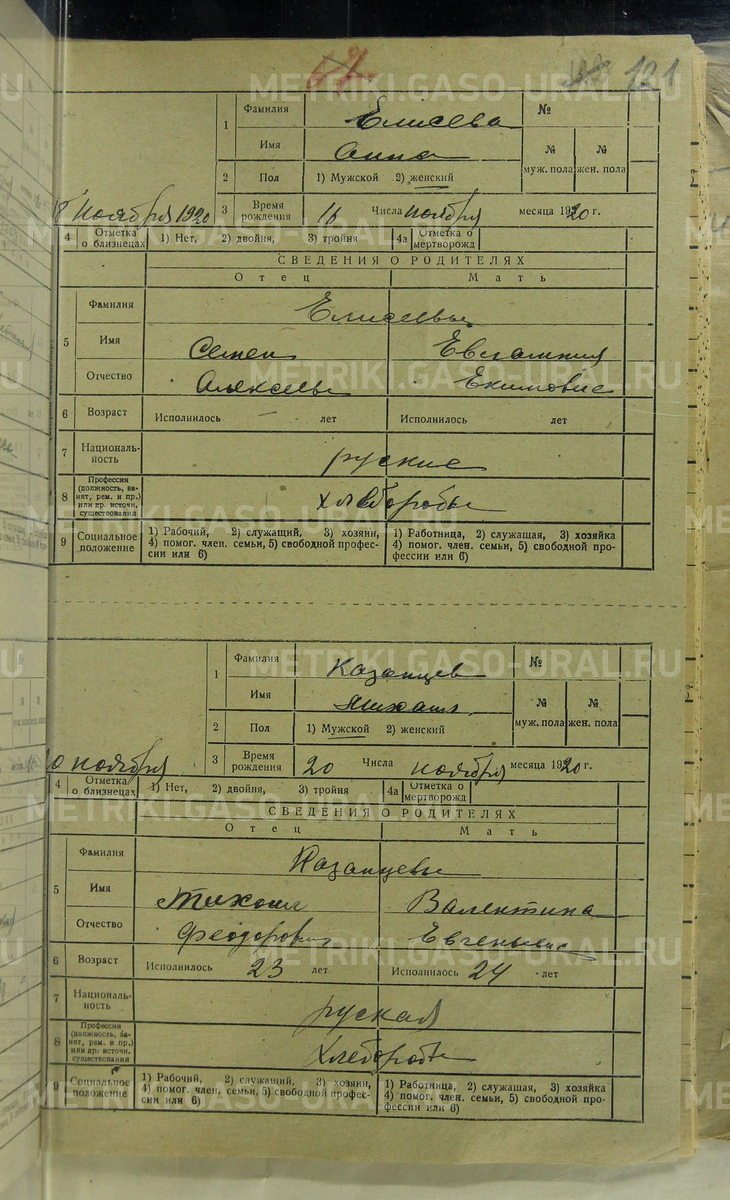 121
1 Фамилия Елисева №
Имя Анна № муж. пола № жен. пола
2 Пол 1) Мужской 2) женский
ноября 1920 3 Время рождения 16 Числа ноября месяца 1920 г.
4 Отметка о близнецах 1) Нет, 2) двойня, 3) тройня 4а Отметка о мертворожд
СВЕДЕНИЯ О РОДИТЕЛЯХ
Отец Мать
5 Фамилия Елисеевы
Имя Семен
Отчество
6 Возраст Исполнилось — лет Исполнилось лет
7 Националь-
ность руские
8 Профессия
(должность, за-
нят, рем. и пр.)
или др. источн.
существования хлеборобы
9 Социальное положение
1) Рабочий, 2) служащий, 3) хозяин,
4) помог. член. семьи, 5) свободной профес-
сии или 6)
1) Работница, 2) служащая, 3) хозяйка
4) помог. член. семьи, 5) свободной про-
фессии или 6)
1 Фамилия Казанцев №
Имя Михаил № муж. пола № жен. пола
2 Пол 1) Мужской 2) женский
ноября 3 Время рождения 20 Числа ноября месяца 1920 г.
4 Отметка о близнецах 1) Нет, 2) двойня, 3) тройня 4а Отметка о мертворожд
СВЕДЕНИЯ О РОДИТЕЛЯХ
Отец Мать
5 Фамилия Казанцевы
Имя Валентина
Отчество Феодорович
6 Возраст Исполнилось 23 лет Исполнилось 24 лет
7 Националь-
ность руская
8 Профессия
(должность, за-
нят, рем. и пр.)
или др. источн.
существования
9 Социальное положение
1) Рабочий, 2) служащий, 3) хозяин,
4) помог. член. семьи, 5) свободной профес-
сии или 6)
1) Работница, 2) служащая, 3) хозяйка
4) помог. член. семьи, 5) свободной про-
фессии или 6)
METRIKI.GASO-URAL.RU